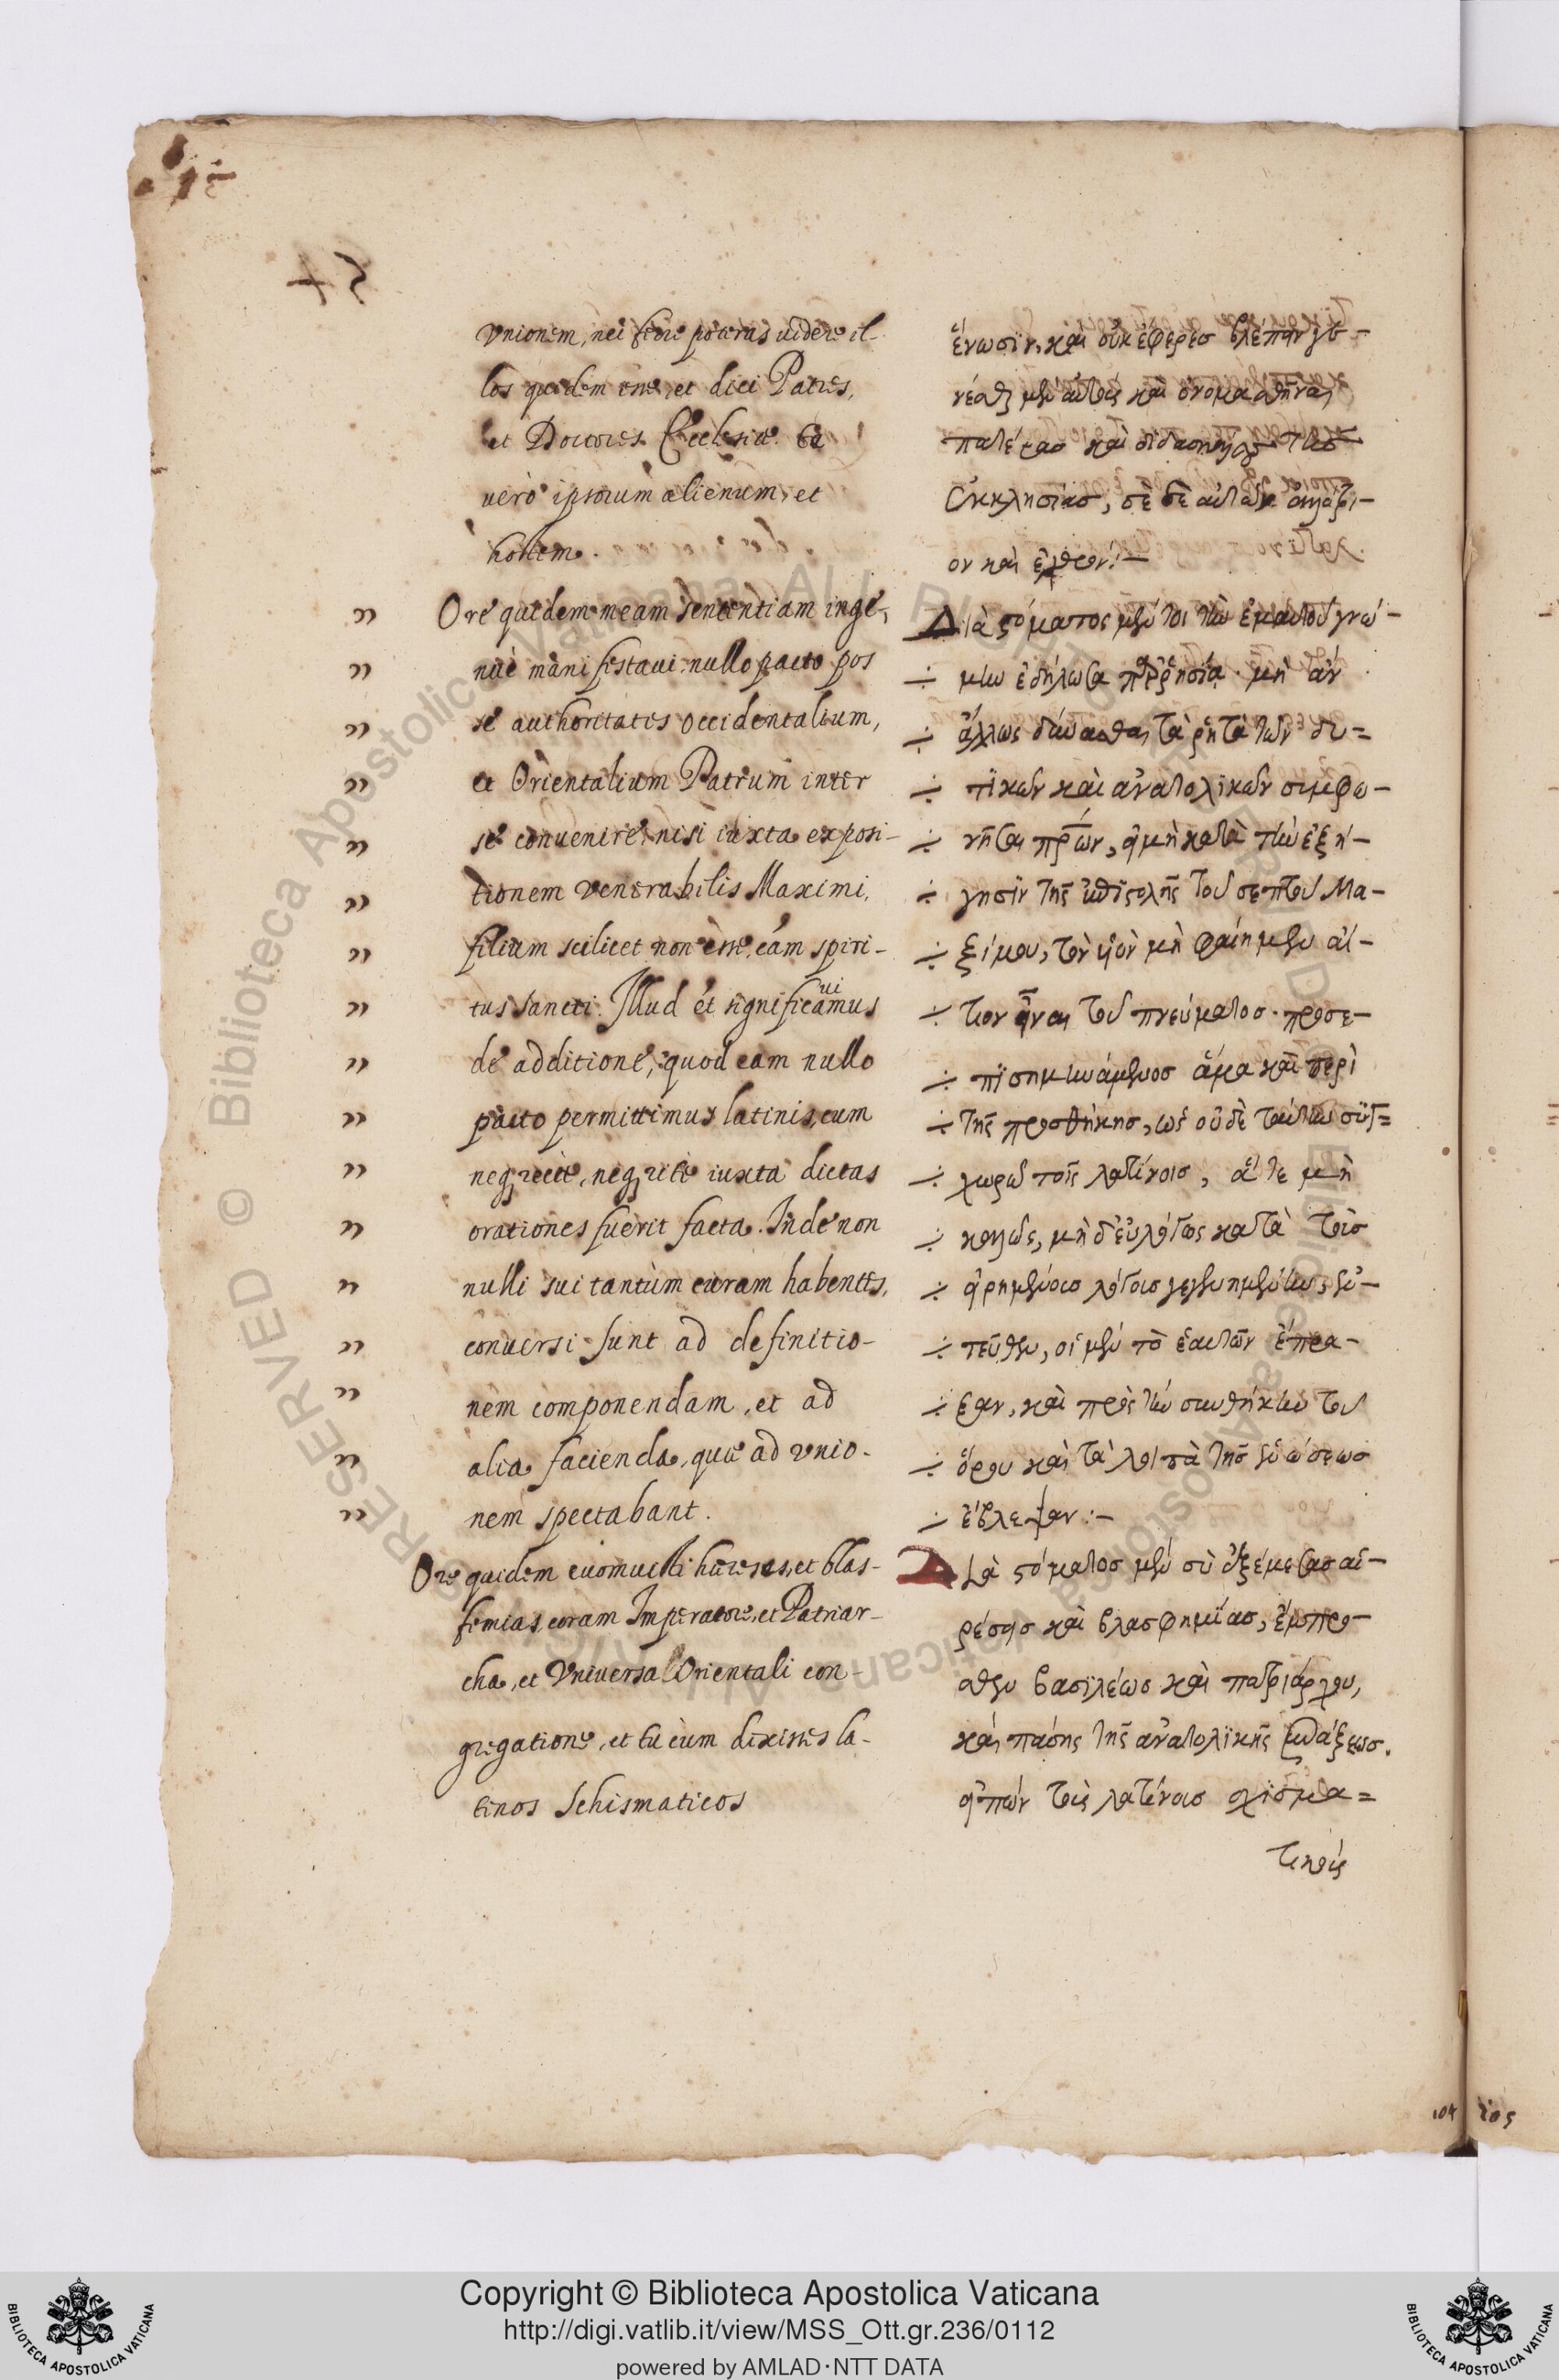 54
Vnionem, nec ferre poteras videre il-
los quidem esse, et dici Patres,
et Doctores Ecclesiæ. te
uerò ipsorum alienum, et
hostem.
Ore quidem meam sententiam inge-
nuè manifestaui: nullo pacto pos
se authoritates occidentalium,
et Orientalium Patrum inter
se conuenire, nisi iuxta exposi-
tionem venerabilis Maximi,
filium scilicet non esse cãm spiri-
tus sancti. Illud et significauimus
de additione, quod eam nullo
pacto permittimus latinis, cum
neq; recte, neq; rite iuxta dictas
orationes fuerit facta. Inde non
nulli sui tantùm curam habentes,
conuersi sunt ad definitio-
nem componendam, et ad
alia facienda, quæ ad vnio-
nem spectabant.
Ore quidem euomuisti hæreses, et blas-
femias, coram Imperatore, et Patriar-
cha, et Vniversa Orientali con-
gregatione, et tu cum dixisses la-
tinos Schismaticos
ἕνωσϊν, καὶ οὐκ ἔφερεσ βλέπειν γε-
νέσθαι μὲν αὐτοὺς καὶ ὀνομασθῆναι
πατέρασ καὶ διδασκάλουσ τῆσ
Ἐκκλησίασ, σὲ δὲ αὐτῶν ἀλλότρι-
ον καὶ ἐχθρόν:-
Διὰ στόματος μέντοι τὴν ἐμαυτοῦ γνώ-
μην ἐδήλωσα παρρησία. μὴ ἂν
ἄλλως δύνασθαι τὰ ῥητὰ τῶν δυ=
τϊκῶν καὶ ἀνατολϊκῶν συμφω-
νῆσαι πρων, εἰ μὴ κατὰ τὴν ἐξή-
γησϊν τῆς ἐπιστολῆς τοῦ σεπτοῦ Μα-
ξίμου, τὸν υἱὸν μὴ φαίημεν αἴ-
τιον εἶναι τοῦ πνεύματοσ. προσε-
πϊσημηνάμενοσ ἅμα καὶ περὶ
τῆς προσθήκησ, ὡς οὐδὲ ταύτην συγ=
χωρῶ τοῖς λατίνοισ, ἅτε μὴ
καλῶς, μὴ δ' εὐλόγως κατὰ τοὺσ
εἰρημένοισ λόγοισ γεγενημένην, ἐν-
τεῦθεν, οἱ μὲν τὸ ἑαυτῶν ἔπρα-
ξαν, καὶ πρὸς τὴν συνθήκην τοῦ
ὅρου καὶ τὰ λοιπὰ τῆσ ἑνώσεωσ
ἔβλεψαν:-
Διὰ στόματοσ μὲν σὺ ἐξέμεσασ αἱ-
ρέσεισ καὶ βλασφημίασ, ἔμπρο-
σθεν βασϊλέωσ καὶ πατριάρχου,
καὶ πάσης τῆς ἀνατολϊκῆς συνάξεωσ.
εἰπὼν τοὺς λατίνουσ σχϊσμα=
τικοὺς
104
105
Copyright © Biblioteca Apostolica Vaticana
http://digi.vatlib.it/view/MSS_Ott.gr.236/0112
powered by AMLAD·NTT DATA
BIBLIOTECA APOSTOLICA VATICANA
BIBLIOTECA APOSTOLICA VATICANA